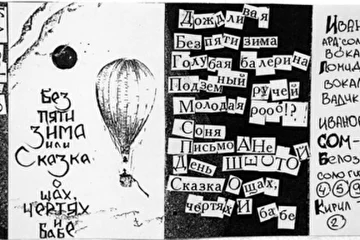 Без
пяти
зима
или
Сказка
о
щах,
чертях
и
бабе
Дождливая
Без пяти зима
Голубая балерина
Подземный ручей
Молодая рооо!?
Соня
Письмо
День
Сказка О щах,
чертях И бабе
Иван
вока
вокал
Иванов
СОМ-
Белоз
соло ги
4 5 6
Кирил
2